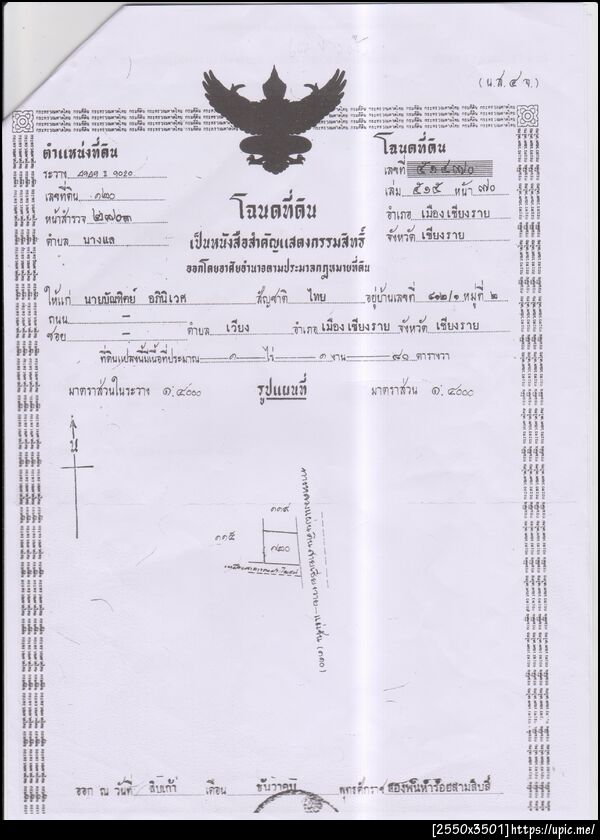 (น.ส. ๔ จ.)
ตำแหน่งที่ดิน
ระวาง
เลขที่ดิน ๑๒๐
หน้าสำรวจ ๒๗๐๓
ตำบล นางแล
โฉนดที่ดิน
เลขที่ ๕๑๔๗๐
เล่ม ๕๑๕ หน้า ๗๐
อำเภอ เมืองเชียงราย
จังหวัด เชียงราย
โฉนดที่ดิน
เป็นหนังสือสำคัญแสดงกรรมสิทธิ์
ออกโดยอาศัยอำนาจตามประมวลกฎหมายที่ดิน
ให้แก่ นายบัณฑิตย์ อภินิเวศ สัญชาติ ไทย อยู่บ้านเลขที่ ๘๑๒/๑ หมู่ที่ ๒
ถนน –
ซอย – ตำบล เวียง อำเภอ เมืองเชียงราย จังหวัด เชียงราย
ที่ดินแปลงนี้มีเนื้อที่ประมาณ ๑ ไร่ ๑ งาน ๘๑ ตารางวา
มาตราส่วนในระวาง ๑:๔๐๐๐ รูปแผนที่ มาตราส่วน ๑:๔๐๐๐
น
๑๑๙
๑๑๕
๑๒๐
ออก ณ วันที่ สิบเก้า เดือน ธันวาคม พุทธศักราช สองพันห้าร้อยสามสิบสี่
[2550x3501]https://upic.me/